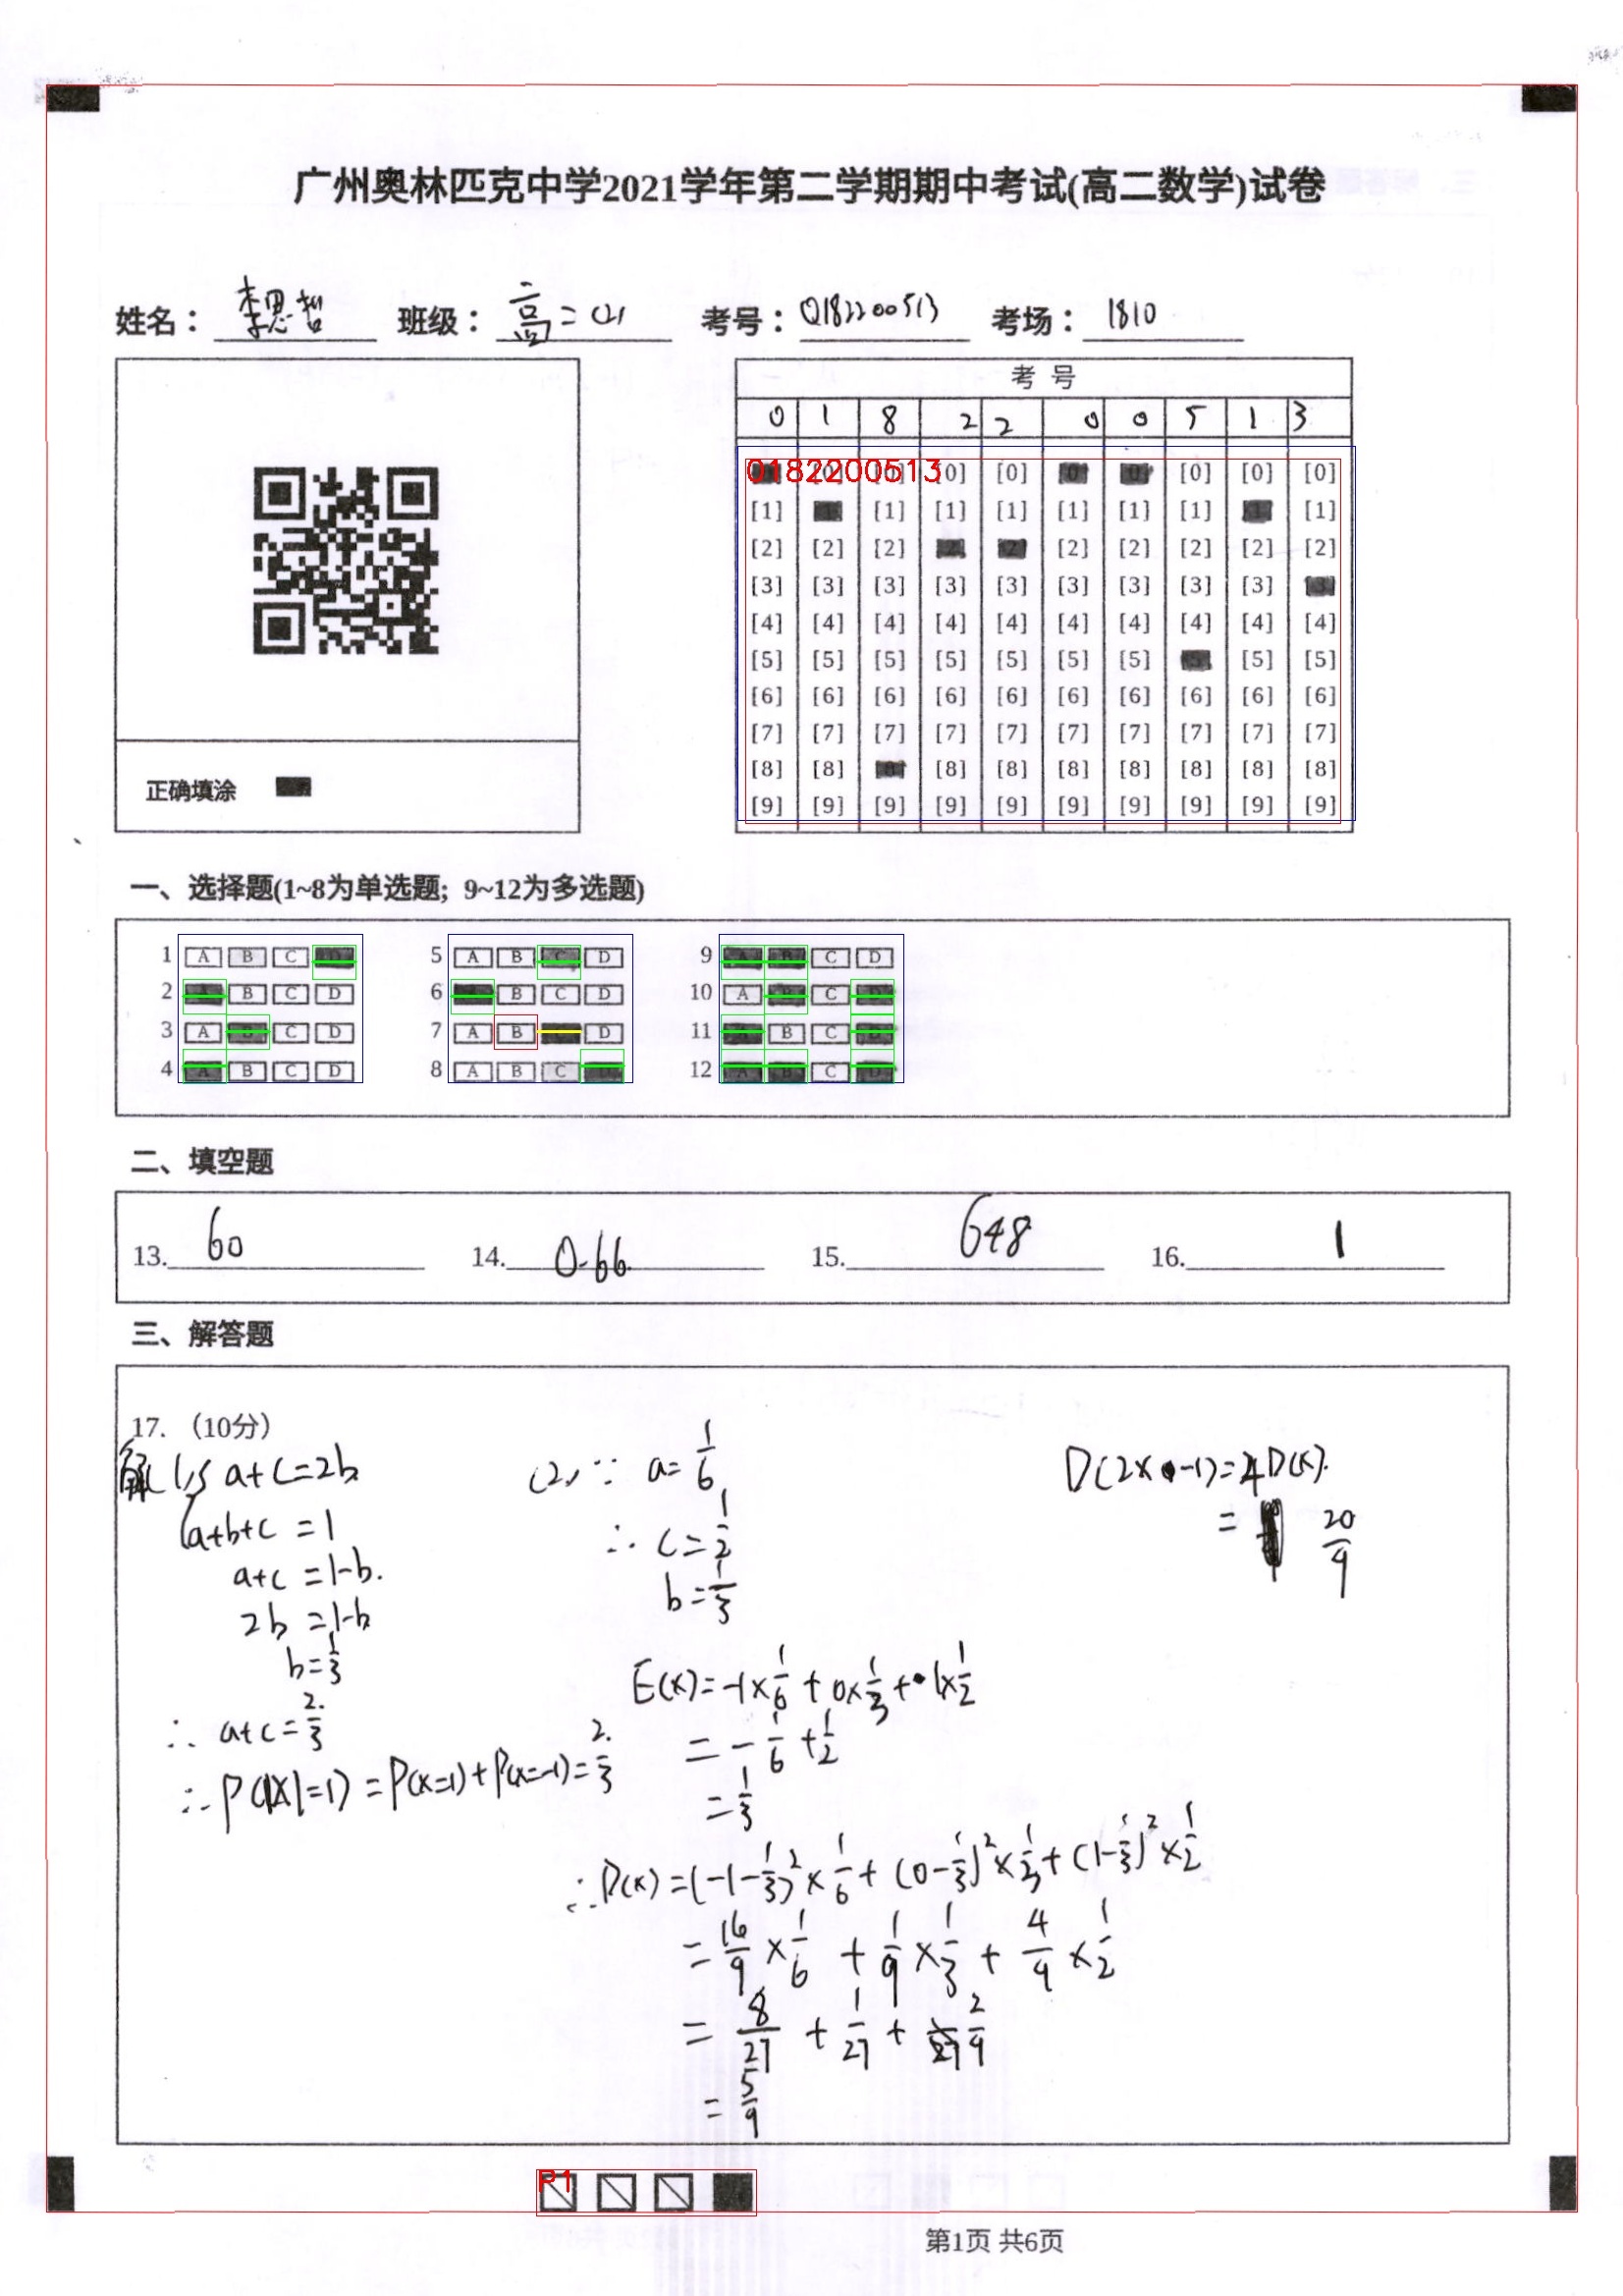 广州奥林匹克中学2021学年第二学期期中考试(高二数学)试卷
姓名： 李思哲 班级： 高二(2) 考号： 0182200513 考场： 1810
考 号
0 1 8 2 2 0 0 5 1 3
0182200513
[0] [0] [0] [0] [0] [0] [0] [0] [0] [0]
[1] [1] [1] [1] [1] [1] [1] [1] [1] [1]
[2] [2] [2] [2] [2] [2] [2] [2] [2] [2]
[3] [3] [3] [3] [3] [3] [3] [3] [3] [3]
[4] [4] [4] [4] [4] [4] [4] [4] [4] [4]
[5] [5] [5] [5] [5] [5] [5] [5] [5] [5]
[6] [6] [6] [6] [6] [6] [6] [6] [6] [6]
[7] [7] [7] [7] [7] [7] [7] [7] [7] [7]
[8] [8] [8] [8] [8] [8] [8] [8] [8] [8]
[9] [9] [9] [9] [9] [9] [9] [9] [9] [9]
正确填涂
一、选择题(1~8为单选题；9~12为多选题)
1 A B C D 5 A B C D 9 A B C D
2 A B C D 6 A B C D 10 A B C D
3 A B C D 7 A B C D 11 A B C D
4 A B C D 8 A B C D 12 A B C D
二、填空题
13. 60 14. 0.66 15. 648 16. 1
三、解答题
17.（10分）
解(1) a+c=2b
a+b+c=1
a+c=1-b.
2b=1-b
b=1/3
∴ a+c=2/3
∴P(|X|=1)=P(x=1)+P(x=-1)=2/3
(2) ∵ a=1/6
∴ c=1/2
b=1/3
E(x)=-1×1/6+0×1/3+1×1/2
=-1/6+1/2
=1/3
∴D(x)=(-1-1/3)²×1/6+(0-1/3)²×1/3+(1-1/3)²×1/2
=16/9×1/6+1/9×1/3+4/9×1/2
=8/27+1/27+2/9
=5/9
D(2x-1)=4D(x).
=20/9
P1
第1页 共6页